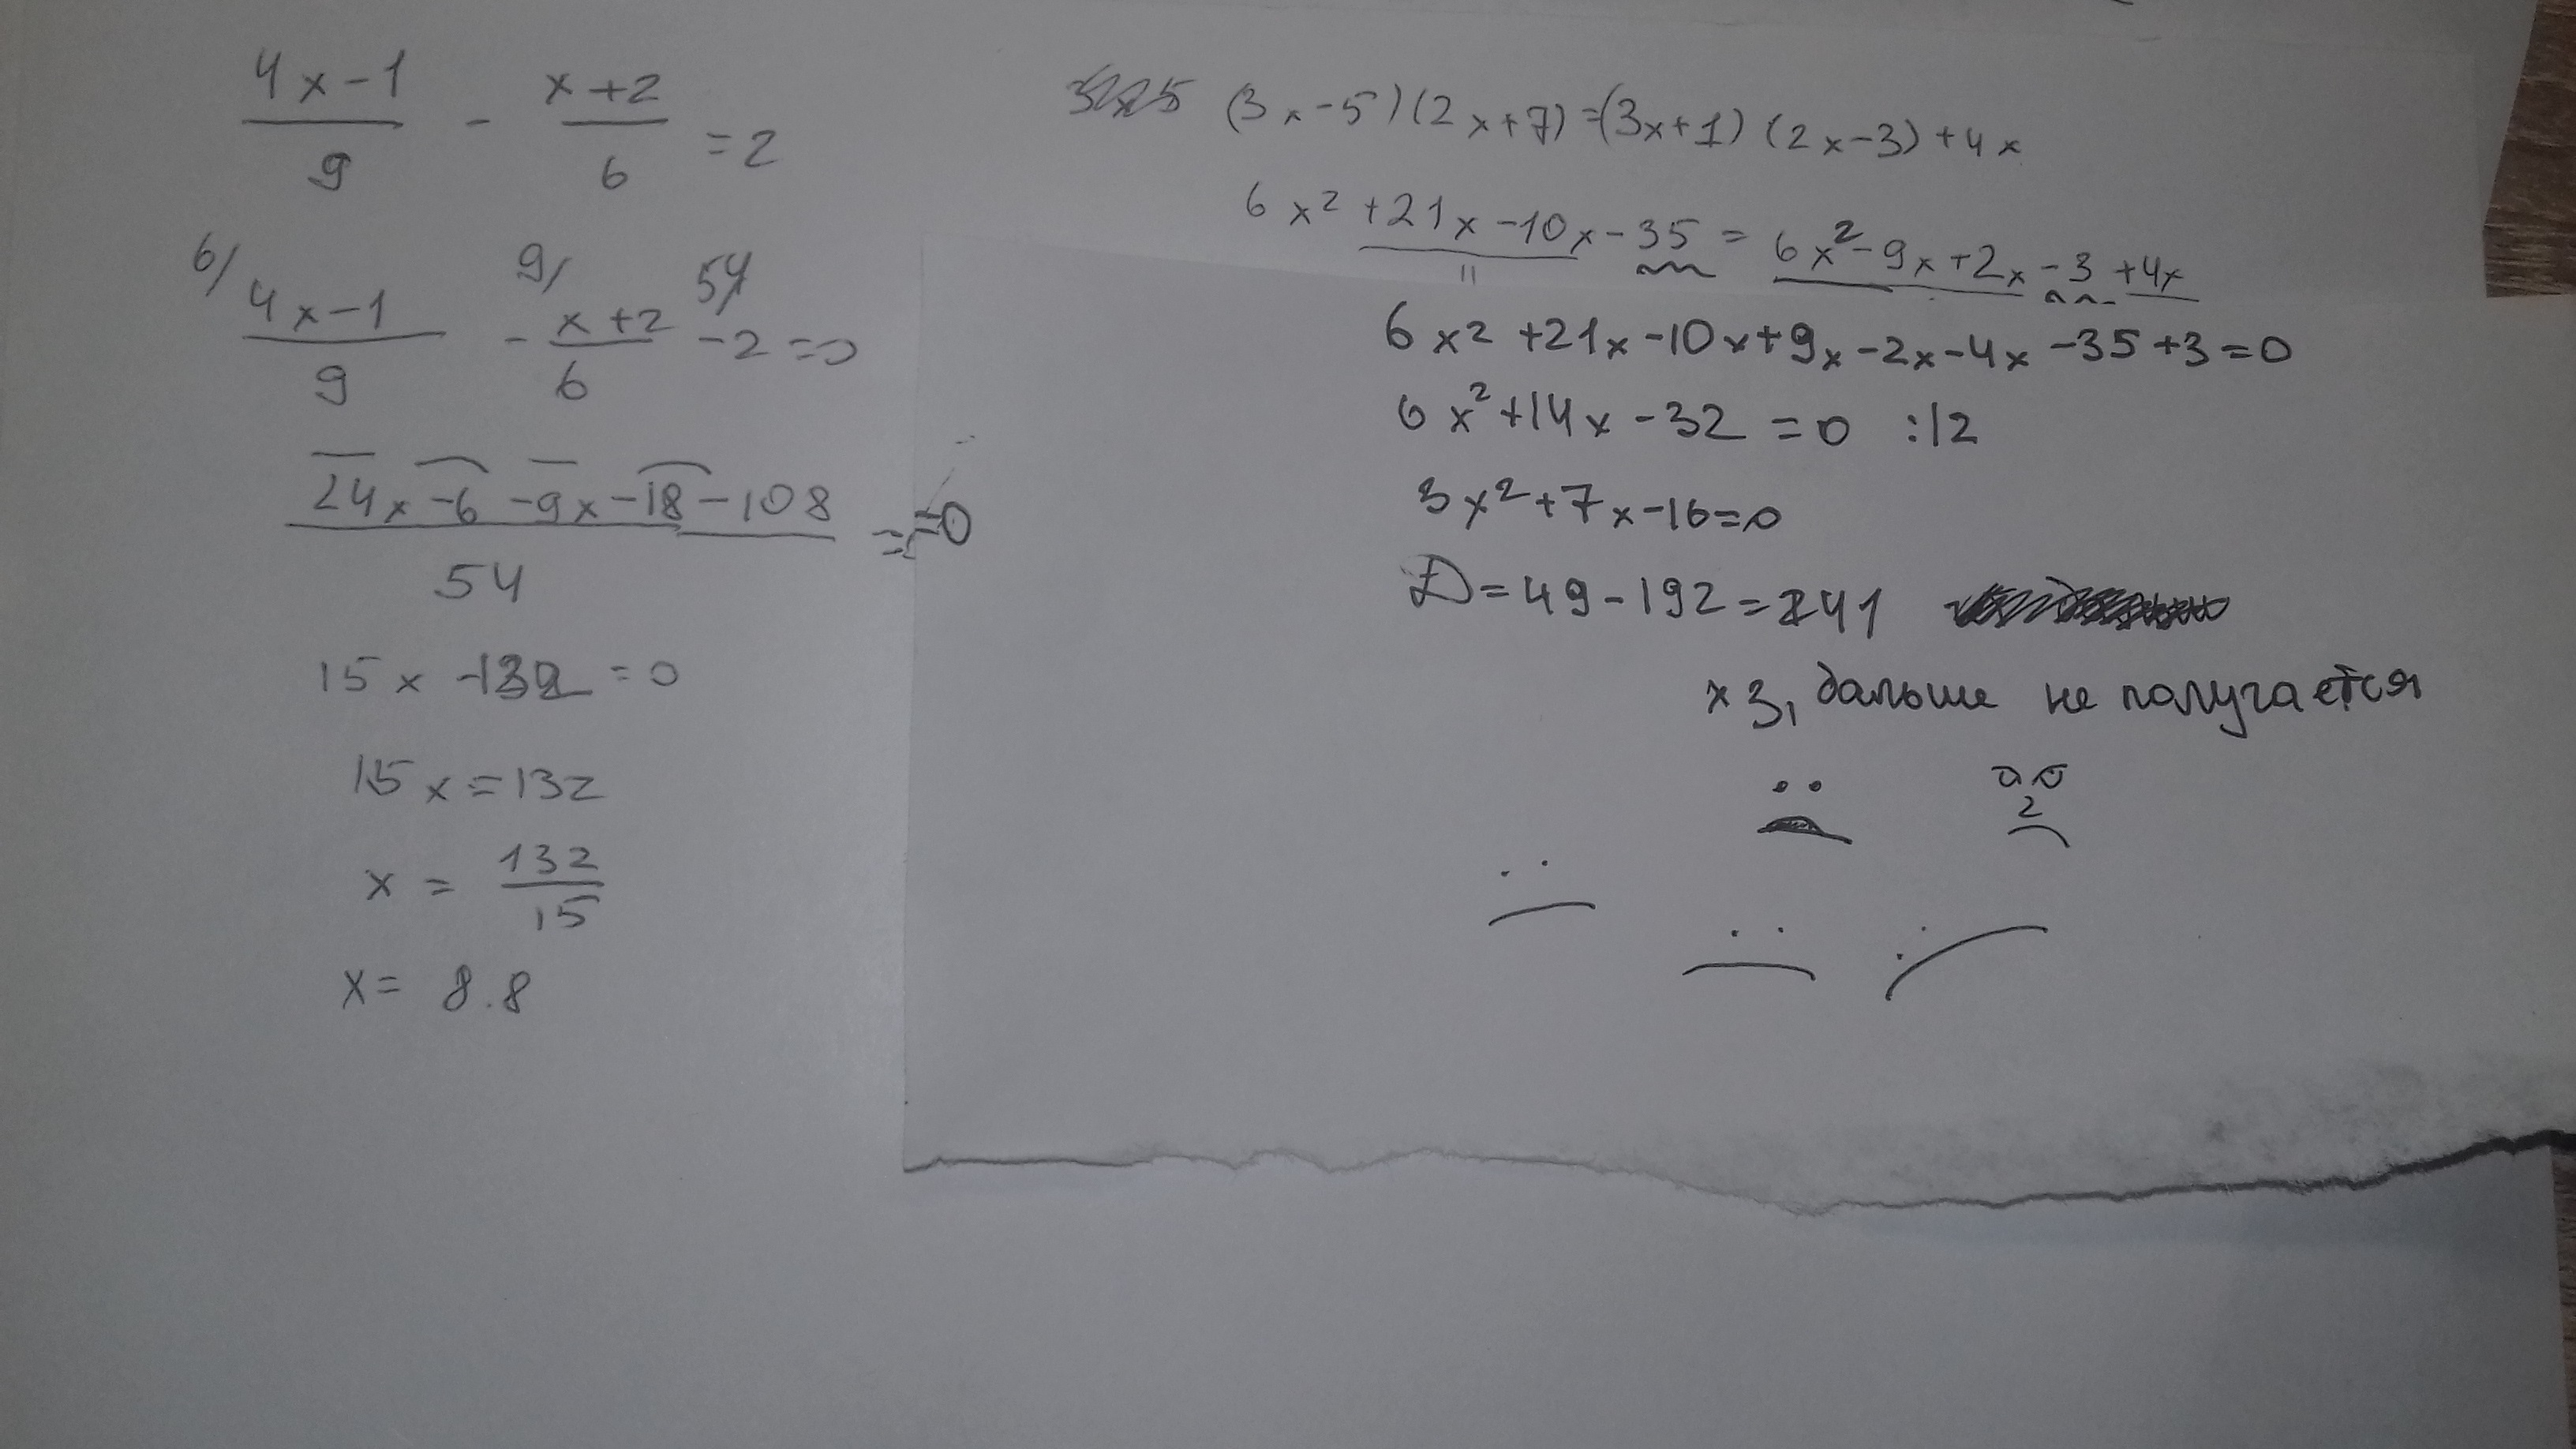 4x-1 / 9 - x+2 / 6 = 2
6/ 4x-1 / 9 - 9/ x+2 / 6 - 54/ 2 = 0
24x -6 -9x -18 -108 / 54 = =0
15x -132 = 0
15x = 132
x = 132 / 15
x = 8.8
(3x-5)(2x+7)=(3x+1)(2x-3)+4x
6x² +21x -10x -35 = 6x² -9x +2x -3 +4x
11
6x² +21x -10x +9x -2x -4x -35 +3 = 0
6x² +14x -32 = 0 :12
3x² +7x -16 = 0
D = 49 - 192 = 241
х з, дальше не получается